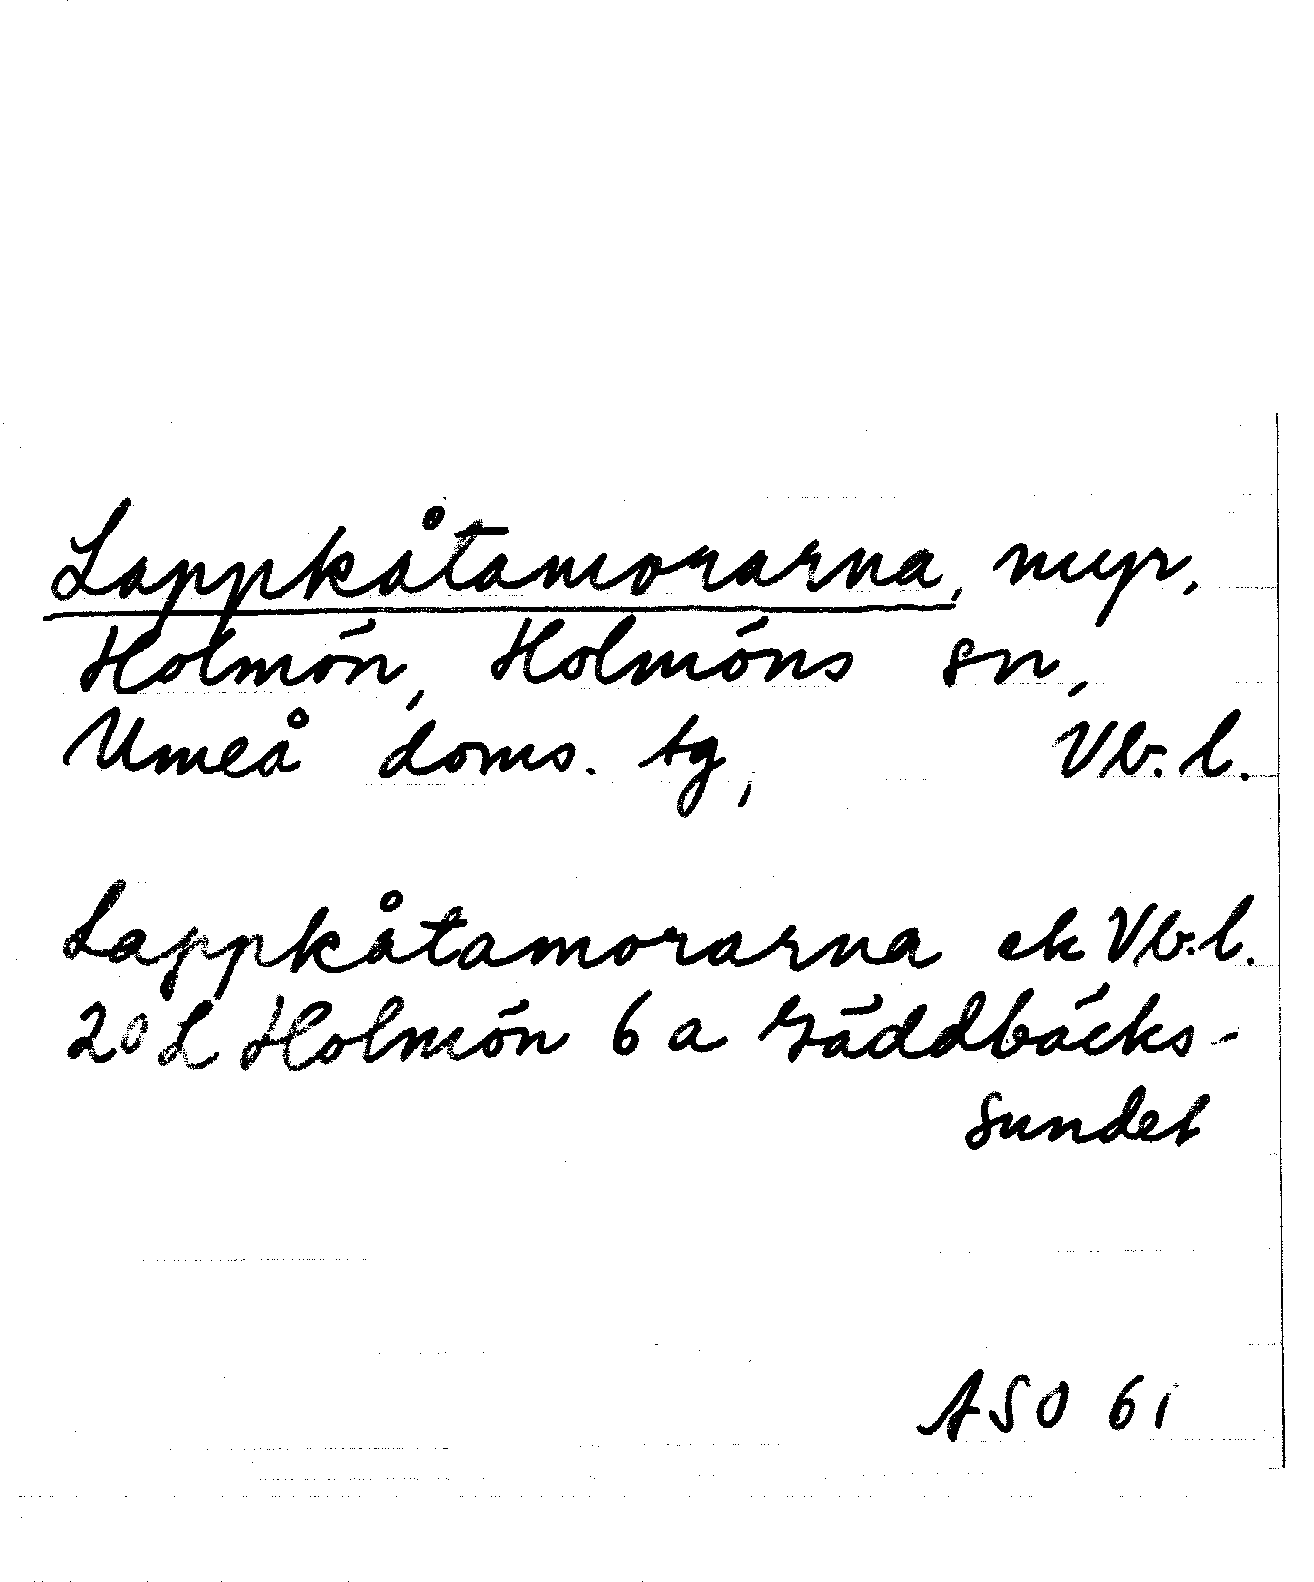 Lappkåtamorarna, myr,
Holmön, Holmöns sn,
Umeå doms. tg, Vb. l.
Lappkåtamorarna ek Vb. l.
20 L Holmön 6 a Gäddbäcks-
sundet
ASO 61